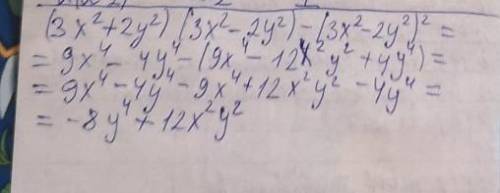 (3x²+2y²)(3x²-2y²)-(3x²-2y²)²=
=9x⁴-4y⁴-(9x⁴-12x²y²+4y⁴)=
=9x⁴-4y⁴-9x⁴+12x²y²-4y⁴=
=-8y⁴+12x²y²